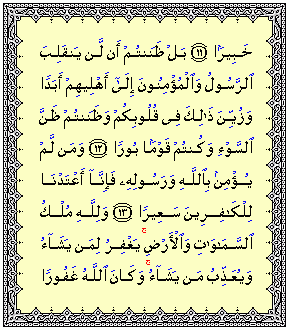 خَبِيرًۢا ۝١١ بَلْ ظَنَنتُمْ أَن لَّن يَنقَلِبَ
ٱلرَّسُولُ وَٱلْمُؤْمِنُونَ إِلَىٰٓ أَهْلِيهِمْ أَبَدًا
وَزُيِّنَ ذَٰلِكَ فِى قُلُوبِكُمْ وَظَنَنتُمْ ظَنَّ
ٱلسَّوْءِ وَكُنتُمْ قَوْمًۢا بُورًا ۝١٢ وَمَن لَّمْ
يُؤْمِنۢ بِٱللَّهِ وَرَسُولِهِۦ فَإِنَّآ أَعْتَدْنَا
لِلْكَـٰفِرِينَ سَعِيرًا ۝١٣ وَلِلَّهِ مُلْكُ
ٱلسَّمَـٰوَٰتِ وَٱلْأَرْضِ ۚ يَغْفِرُ لِمَن يَشَآءُ
وَيُعَذِّبُ مَن يَشَآءُ ۚ وَكَانَ ٱللَّهُ غَفُورًا